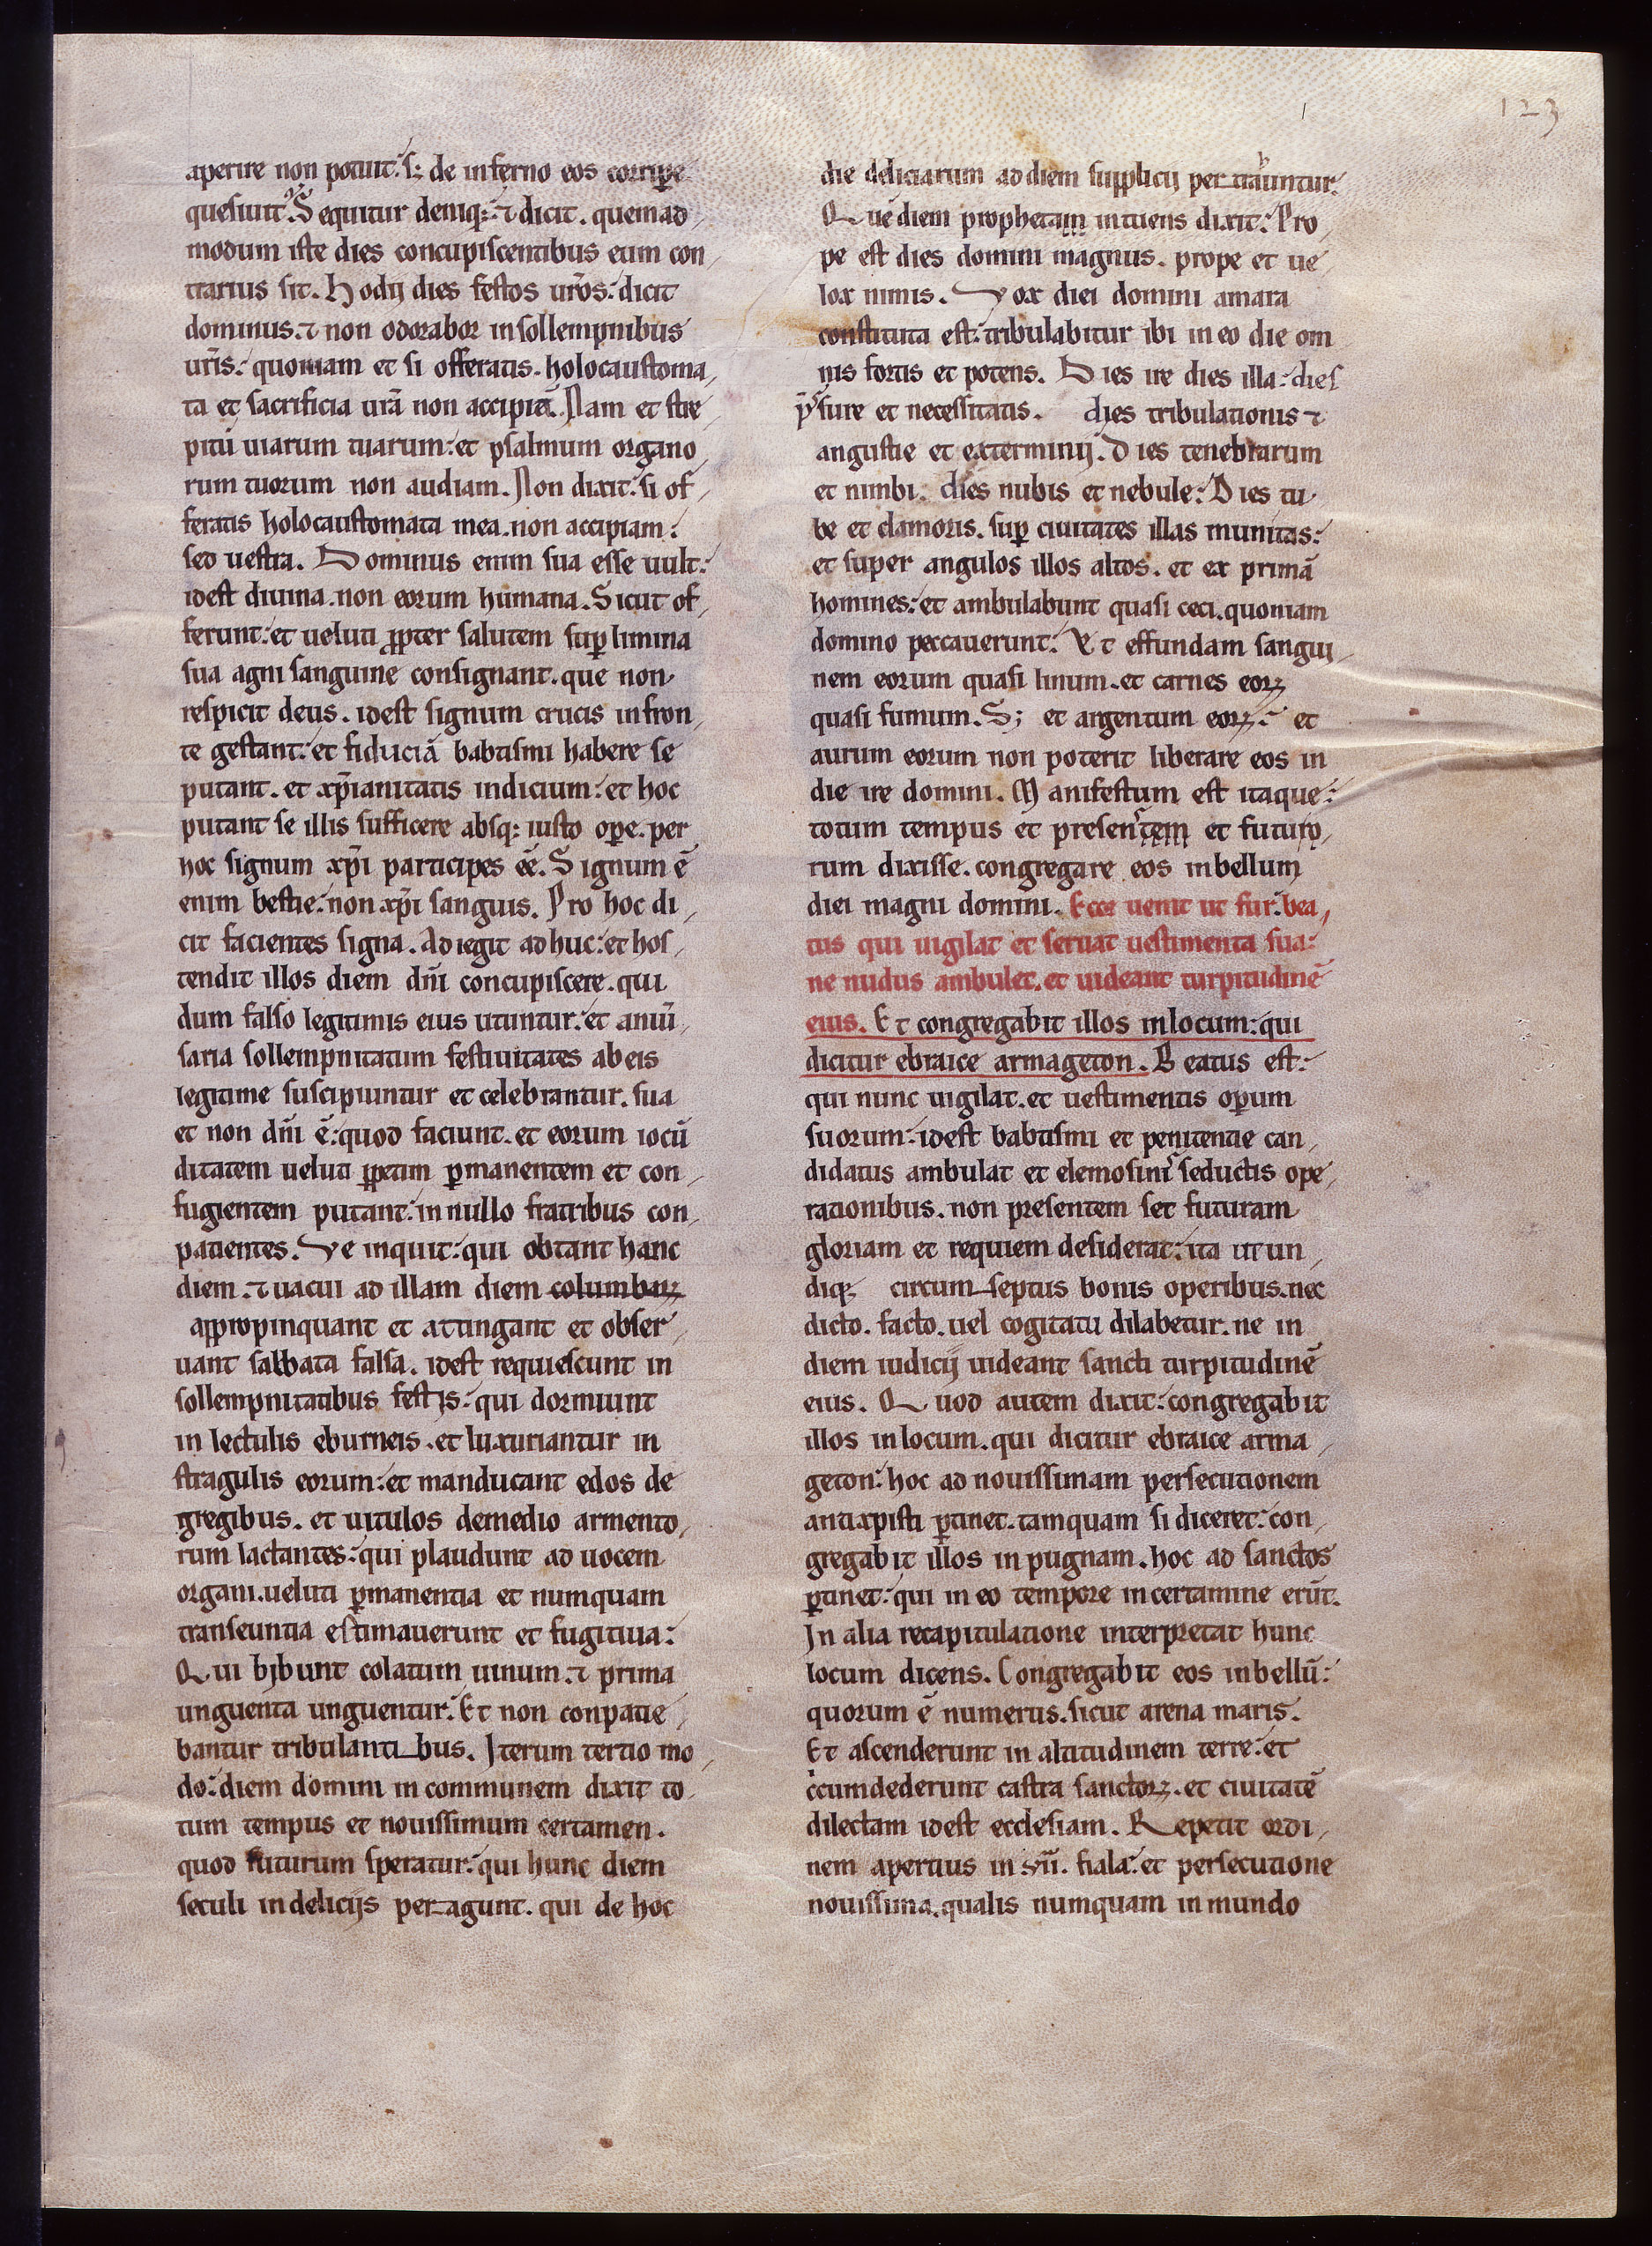 123
aperire non potuit. s; de inferno eos corripe
quesiuit. Sequitur deniq; ⁊ dicit. quemad
modum iste dies concupiscentibus eum con
trarius sit. Hodij dies festos ur̄os: dicit
dominus. ⁊ non odorabor insollempnibus
ur̄is: quoniam et si offeratis. holocaustoma
ta et sacrificia urā non accipiā. Nam et stre
pitū uiarum tuarum: et psalmum organo
rum tuorum non audiam. Non dixit: si of
feratis holocaustomata mea. non accipiam:
sed uestra. Dominus enim sua esse uult:
idest diuina. non eorum humana. Sicut of
ferunt: et ueluti ꝓpter salutem suꝑ limina
sua agni sanguine consignant. que non
respicit deus. idest signum crucis infron
te gestant: et fiduciā babtismi habere se
putant. et xp̄ianitatis indicium: et hoc
putant se illis sufficere absq; iusto oꝑe. per
hoc signum xp̄i participes eē. Signum ē
enim bestie: non xp̄i sanguis. Pro hoc di
cit facientes signa. Adiegit adhuc: et hos
tendit illos diem dn̄i concupiscere. qui
dum falso legitimis eius utuntur: et aniū
saria sollempnitatum festiuitates abeis
legitime suscipiuntur et celebrantur. sua
et non dn̄i ē: quod faciunt. et eorum iocū
ditatem ueluti ꝑpetim ꝑmanentem et con
fugientem putant: in nullo fratribus con
patientes. Ve inquit: qui obtant hanc
diem. ⁊ uacui ad illam diem columbaꝝ
appropinquant et atingant et obser
uant sabbata falsa. idest requiescunt in
sollempnitatibus festis: qui dormiunt
in lectulis eburneis. et luxuriantur in
stragulis eorum: et manducant edos de
gregibus. et uitulos demedio armento
rum lactantes: qui plaudunt ad uocem
organi. ueluti ꝑmanentia et numquam
transeuntia estimauerunt et fugitiua:
Qui bibunt colatum uinum. ⁊ prima
unguenta unguentur. Et non conpatie
bantur tribulantibus. Iterum tertio mo
do: diem domini in communem dixit to
tum tempus et nouissimum certamen.
quod futurum speratur: qui hunc diem
seculi in delicijs peragunt. qui de hoc
die deliciarum ad diem supplicij pertrauntur.
Que diem prophetam intuens dixit: Pro
pe est dies domini magnus. prope et ue
lox nimis. Vox diei domini amara
constituta est: tribulabitur ibi in eo die om
nis fortis et potens. Dies ire dies illa: dies
p̄sure et necessitatis. dies tribulationis ⁊
angustie et exterminij. Dies tenebrarum
et nimbi. dies nubis et nebule: Dies tu
be et clamoris. suꝑ ciuitates illas munitas:
et super angulos illos altos. et ex primā
homines: et ambulabunt quasi ceci. quoniam
domino peccauerunt: Et effundam sangui
nem eorum quasi limum. et carnes eoꝝ
quasi fumum. S; et argentum eoꝝ: et
aurum eorum non poterit liberare eos in
die ire domini. Manifestum est itaque:
totum tempus et presentem et futuro
rum dixisse. congregare eos inbellum
diei magni domini. Ecce uenit ut fur: bea
tus qui uigilat et seruat uestimenta sua:
ne nudus ambulet. et uideant turpitudinē
eius. Et congregabit illos inlocum: qui
dicitur ebraice armageton. Beatus est:
qui nunc uigilat. et uestimentis oꝑum
suorum: idest babtismi et penitentie can
didatus ambulat et elemosini seductis ope
rationibus. non presentem set futuram
gloriam et requiem desiderat: ita ut un
diq; circumseptus bonis operibus. nec
dicto. facto. uel cogitatu dilabetur. ne in
diem iudicij uideant sancti turpitudinē
eius. Quod autem dixit: congregabit
illos inlocum. qui dicitur ebraice arma
geton: hoc ad nouissimam persecutionem
antixpisti ꝑtinet. tamquam si diceret: con
gregabit illos in pugnam. hoc ad sanctos
ꝑtinet: qui in eo tempore in certamine erūt.
In alia recapitulatione interpretat hunc
locum dicens. Congregabit eos inbellū:
quorum ē numerus. sicut arena maris.
Et ascenderunt in altitudinem terre: et
ccumdederunt castra sanctoꝝ. et ciuitatē
dilectam idest ecclesiam. Repetit ordi
nem apertius in vii. fiala: et persecutione
nouissima. qualis numquam in mundo